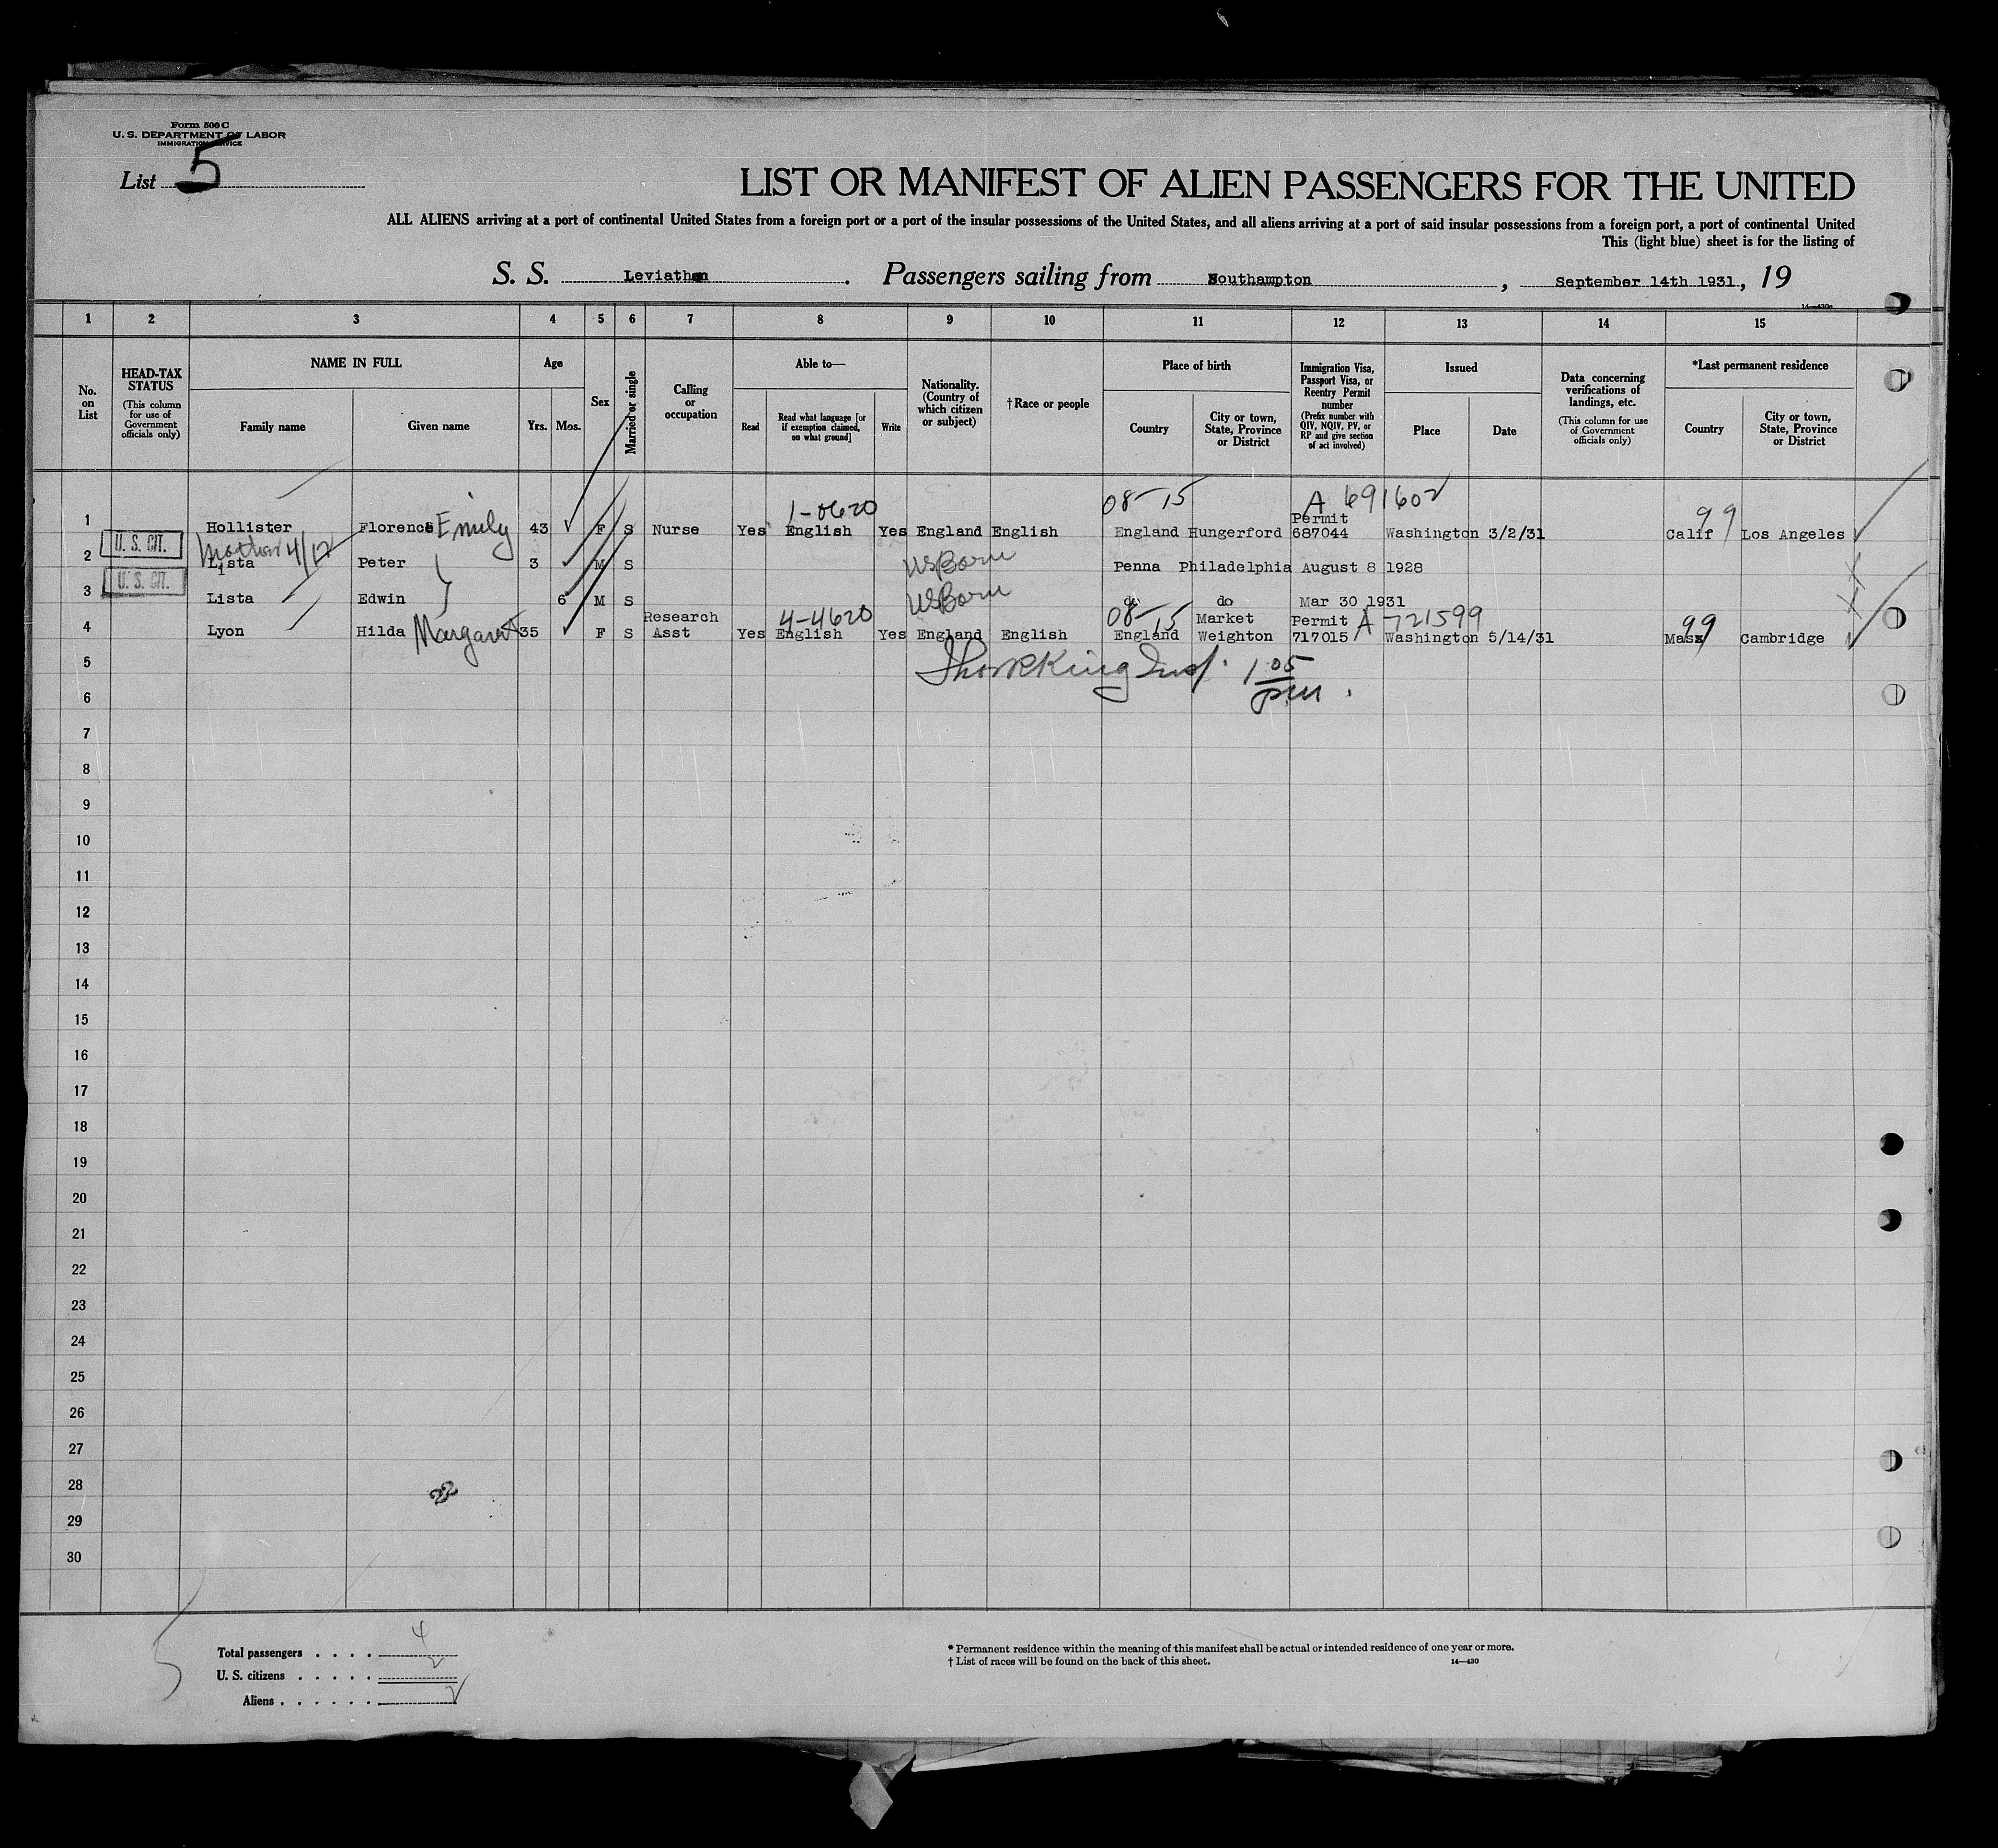 Form 500 C
U. S. DEPARTMENT OF LABOR
IMMIGRATION SERVICE
List 5
LIST OR MANIFEST OF ALIEN PASSENGERS FOR THE UNITED
ALL ALIENS arriving at a port of continental United States from a foreign port or a port of the insular possessions of the United States, and all aliens arriving at a port of said insular possessions from a foreign port, a port of continental United
This (light blue) sheet is for the listing of
S. S. Leviathan. Passengers sailing from Southampton, September 14th 1931, 19
14—430a
1 2 3 4 5 6 7 8 9 10 11 12 13 14 15
No. on List
HEAD-TAX STATUS (This column for use of Government officials only)
NAME IN FULL Family name Given name
Age Yrs. Mos.
Sex
Married or single
Calling or occupation
Able to— Read Read what language [or if exemption claimed, on what ground] Write
Nationality. (Country of which citizen or subject)
†Race or people
Place of birth Country City or town, State, Province or District
Immigration Visa, Passport Visa, or Reentry Permit number (Prefix number with QIV, NQIV, PV, or RP and give section of act involved)
Issued Place Date
Data concerning verifications of landings, etc. (This column for use of Government officials only)
*Last permanent residence Country City or town, State, Province or District
1-0620 08-15 A 691602 99
1 Hollister Florence Emily 43 F S Nurse Yes English Yes England English England Hungerford Permit 687044 Washington 3/2/31 Calif Los Angeles
Mother 4/12
2 U. S. CIT. Lista Peter 3 M S US Born Penna Philadelphia August 8 1928
3 U. S. CIT. Lista Edwin 6 M S US Born do do Mar 30 1931
4-4620 08-15 A 721599 99
4 Lyon Hilda Margaret 35 F S Research Asst Yes English Yes England English England Market Weighton Permit 717015 Washington 5/14/31 Mass Cambridge
5
1 05 pm.
6
7
8
9
10
11
12
13
14
15
16
17
18
19
20
21
22
23
24
25
26
27
28
29
30
Total passengers . . . . 4
U. S. citizens . . . . . 2
Aliens . . . . . . 2
* Permanent residence within the meaning of this manifest shall be actual or intended residence of one year or more.
† List of races will be found on the back of this sheet.
14—430